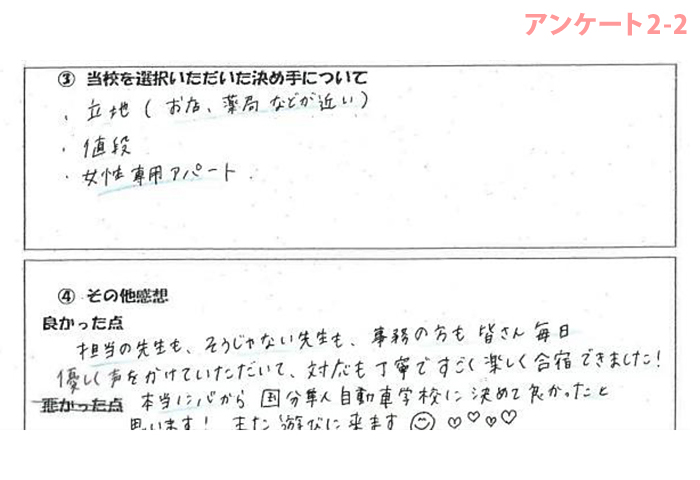 アンケート2-2
③ 当校を選択いただいた決め手について
・立地(お店、薬局などが近い)
・値段
・女性専用アパート
④ その他感想
良かった点
担当の先生も、そうじゃない先生も、事務の方も皆さん毎日
優しく声をかけていただいて、対応も丁寧ですごく楽しく合宿できました!
悪かった点 本当に心から国分隼人自動車学校に決めて良かったと
思います! また遊びに来ます